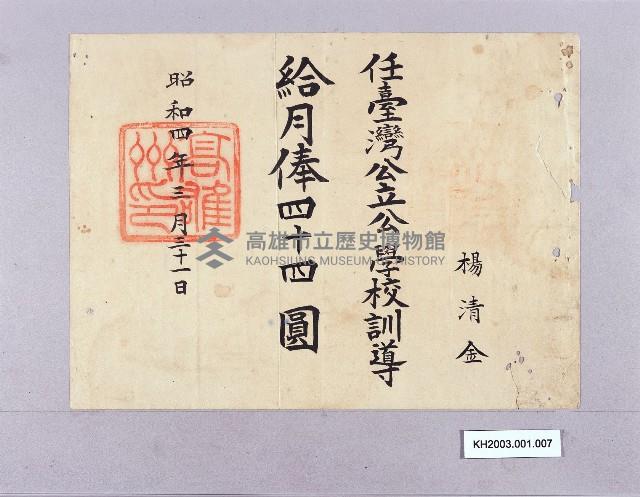 楊清金
任臺灣公立公學校訓導
給月俸四十四圓
昭和四年三月三十一日
高雄州印
高雄市立歷史博物館
KAOHSIUNG MUSEUM OF HISTORY
KH2003.001.007